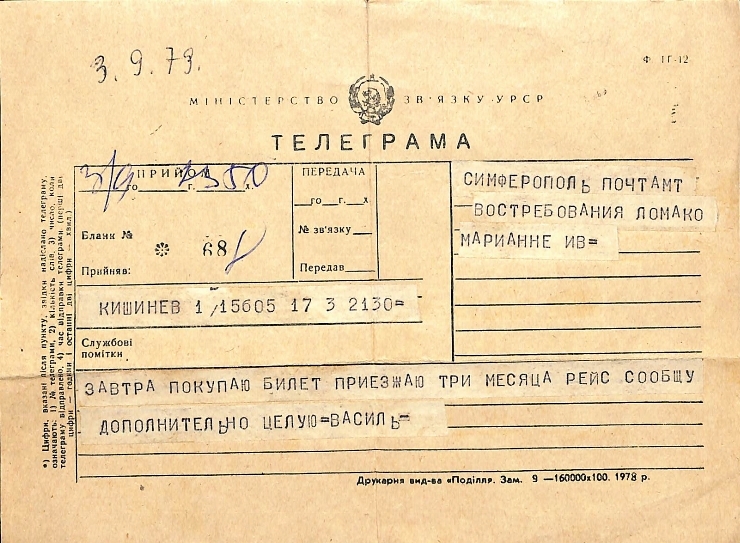 3.9.79.
Ф. ТГ-12
МІНІСТЕРСТВО ЗВ'ЯЗКУ УРСР
ТЕЛЕГРАМА
ПРИЙОМ
3/9 го г. х.
ПЕРЕДАЧА
го г. х
№ зв'язку
Передав
Бланк №
68
Прийняв:
СИМФЕРОПОЛЬ ПОЧТАМТ
ВОСТРЕБОВАНИЯ ЛОМАКО
МАРИАННЕ ИВ=
КИШИНЕВ 1/15605 17 3 2130=
Службові
помітки
ЗАВТРА ПОКУПАЮ БИЛЕТ ПРИЕЗЖАЮ ТРИ МЕСЯЦА РЕЙС СООБЩУ
ДОПОЛНИТЕЛЬНО ЦЕЛУЮ=ВАСИЛЬ=
*) Цифри, вказані після пункту, звідки надіслано телеграму,
означають: 1) № телеграми, 2) кількість слів, 3) число, коли
телеграму відправлено, 4) час відправки телеграми (перші дві
цифри — години і останні дві цифри — хвил.)
Друкарня вид-ва «Поділля». Зам. 9 —160000х100. 1978 р.